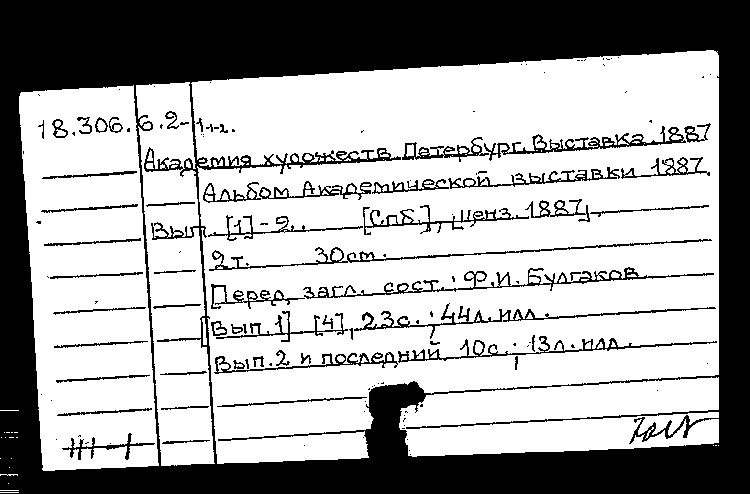 18.306.6.2-1-1-2.
Академия художеств. Петербург. Выставка. 1887
Альбом Академической выставки 1887.
Вып. [1]-2. [Спб.], [ценз. 1887].
2т. 30см.
Перед загл. сост.: Ф.И. Булгаков.
[Вып.1] [4], 23с.; 44л. илл.
Вып.2 и последний. 10с.; 13л. илл.